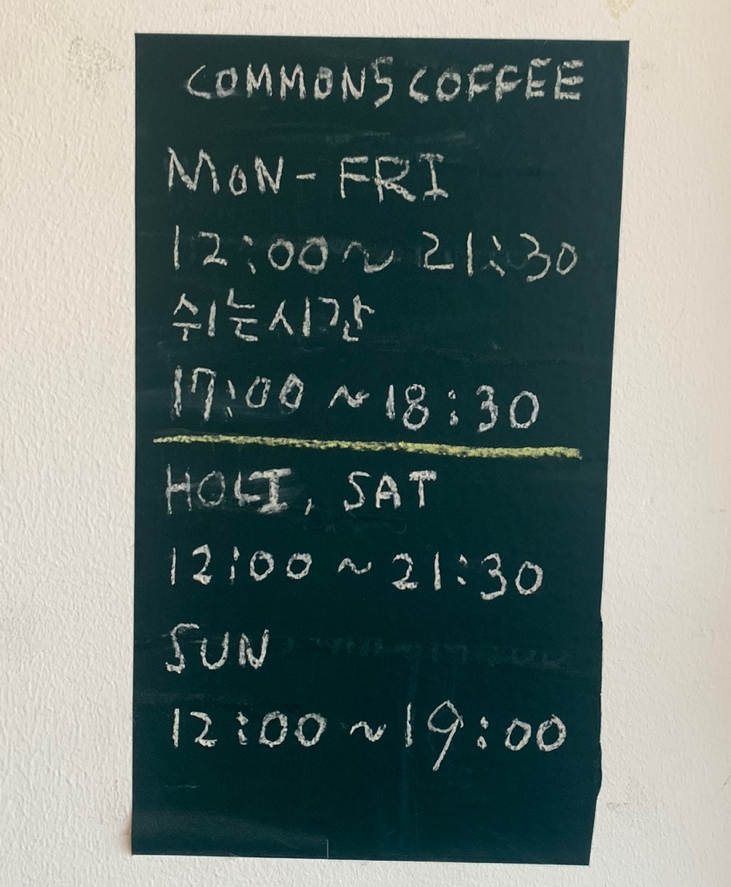 COMMONS COFFEE
MON-FRI
12:00~21:30
쉬는시간
17:00~18:30
HOLI, SAT
12:00~21:30
SUN
12:00~19:00